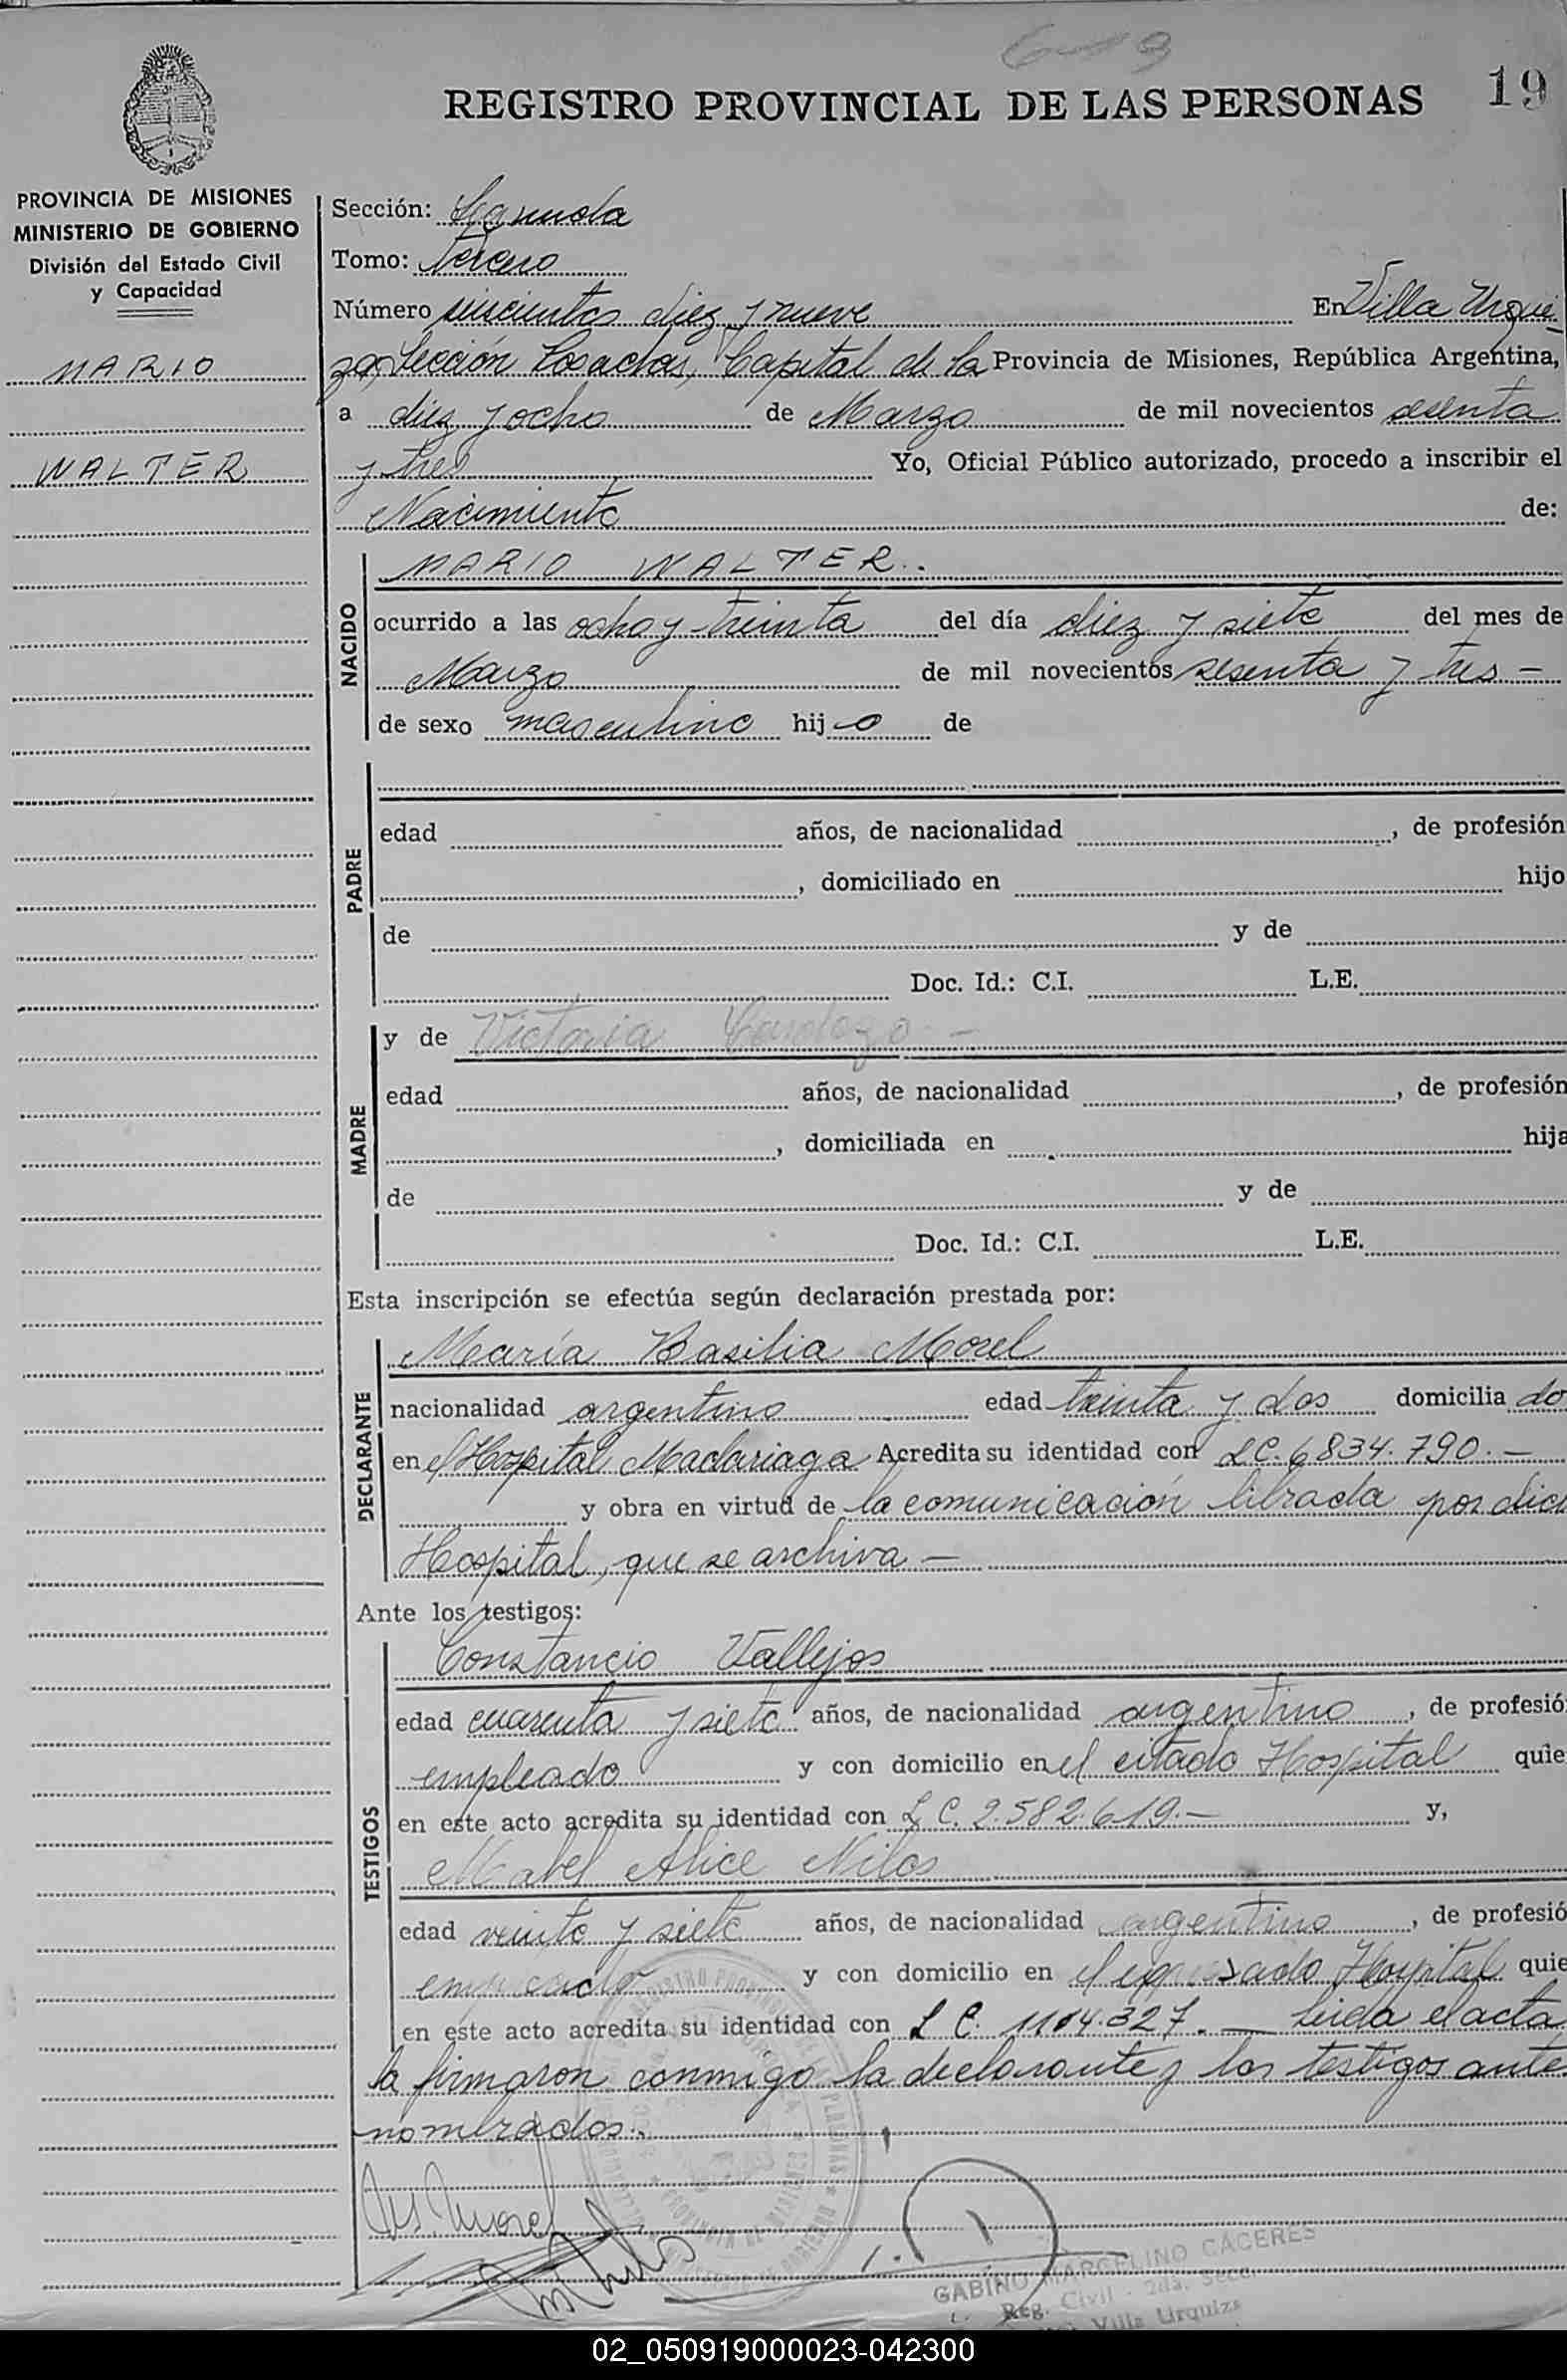 619
REGISTRO PROVINCIAL DE LAS PERSONAS 19
PROVINCIA DE MISIONES
MINISTERIO DE GOBIERNO
División del Estado Civil
y Capacidad
MARIO
WALTER
Sección: Segunda
Tomo: Tercero
Número seiscientos diez y nueve En Villa Urqui-
za, Sección Posadas, Capital de la Provincia de Misiones, República Argentina,
a diez y ocho de Marzo de mil novecientos sesenta
y tres Yo, Oficial Público autorizado, procedo a inscribir el
Nacimiento de:
NACIDO
MARIO WALTER.
ocurrido a las ocho y treinta del día diez y siete del mes de
Marzo de mil novecientos sesenta y tres —
de sexo masculino hijo de
PADRE
edad años, de nacionalidad , de profesión
, domiciliado en hijo
de y de
Doc. Id.: C.I. L.E.
MADRE
y de Victoria Cardozo —
edad años, de nacionalidad , de profesión
, domiciliada en hija
de y de
Doc. Id.: C.I. L.E.
Esta inscripción se efectúa según declaración prestada por:
DECLARANTE
María Basilia Morel
nacionalidad argentino edad treinta y dos domiciliado
en el Hospital Madariaga Acredita su identidad con LC. 6834.790. —
y obra en virtud de la comunicación librada por dich
Hospital, que se archiva —
Ante los testigos:
TESTIGOS
Constancio Vallejos
edad cuarenta y siete años, de nacionalidad argentino, de profesió
empleado y con domicilio en el citado Hospital quie
en este acto acredita su identidad con L C. 2.582.619. — y,
Mabel Alice Nilos
edad veinte y siete años, de nacionalidad argentino, de profesió
empleado y con domicilio en el expresado Hospital quie
en este acto acredita su identidad con L C. 1104.327. — Leida el acta
la firmaron conmigo la declarante y los testigos ante
nombrados.
Morel
GABINO MARCELINO CACERES
Reg. Civil - 2da. Secc.
Villa Urquiza
02_050919000023-042300